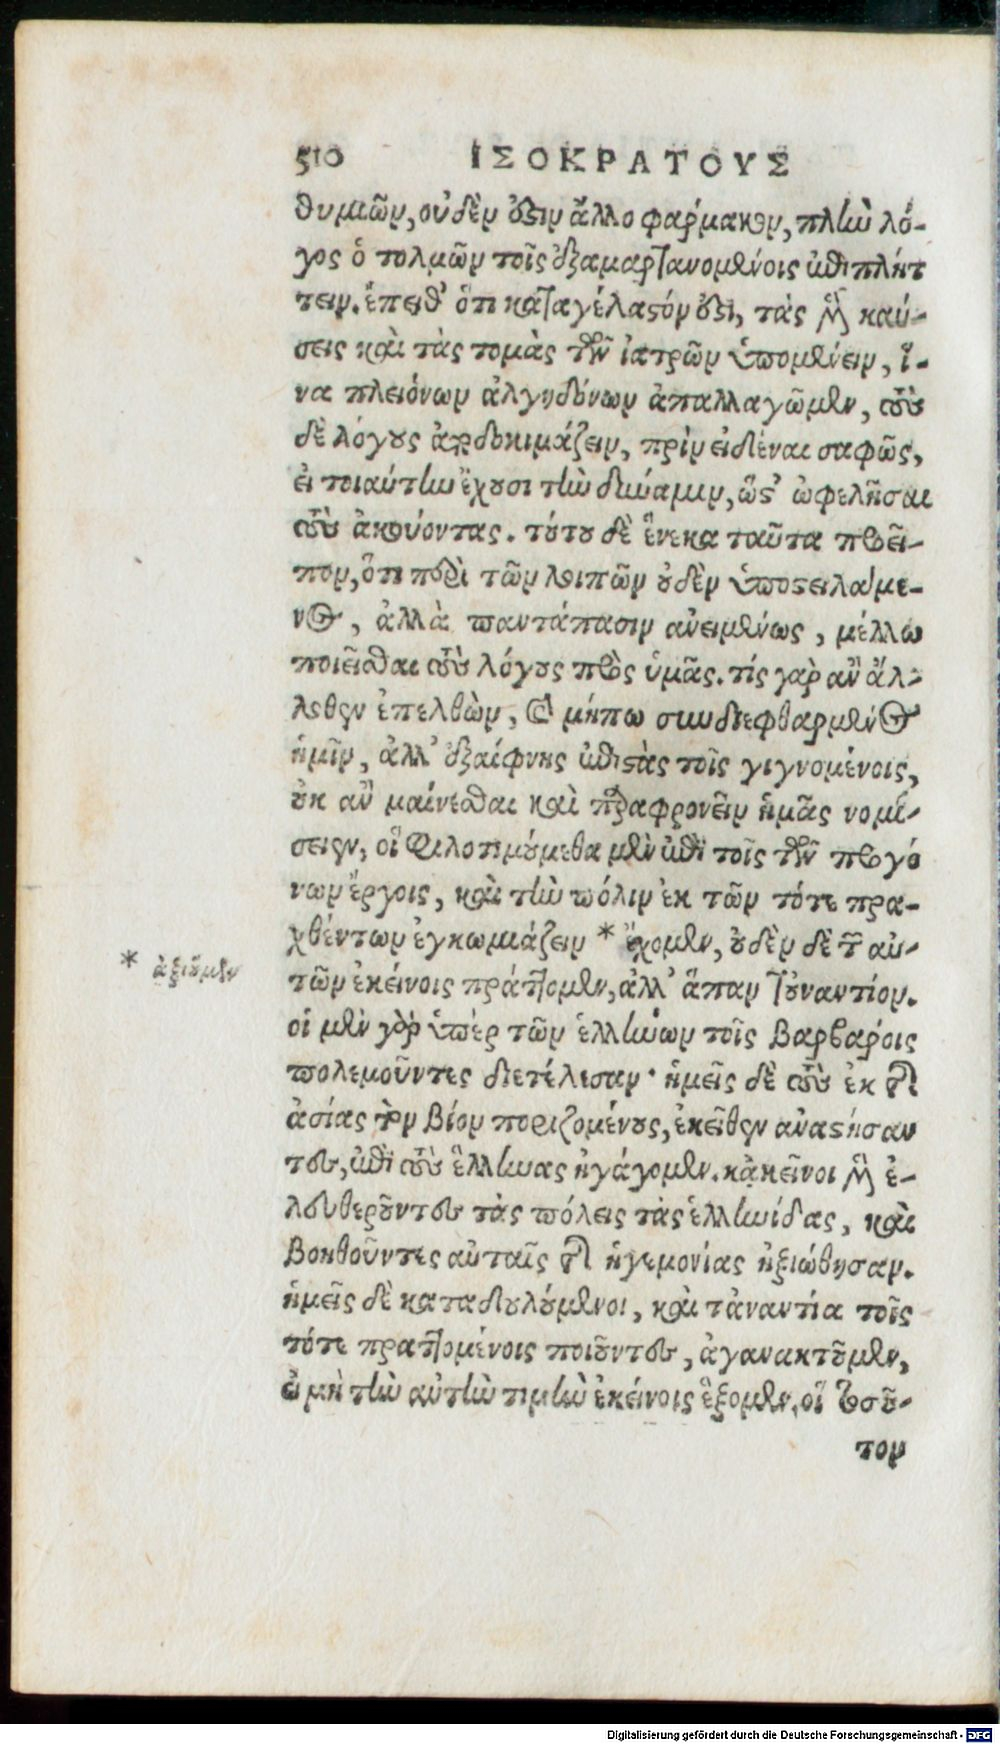 510 ΙΣΟΚΡΑΤΟΥΣ
θυμιῶν, οὐδέν ἐστιν ἄλλο φάρμακον, πλὴν λό-
γος ὁ τολμῶν τοῖς ἐξαμαρτανομένοις ἐπιπλήτ
τειν. ἔπειθ' ὅτι καταγέλαστόν ἐστι, τὰς μὲν καύ-
σεις καὶ τὰς τομὰς τῶν ἰατρῶν ὑπομένειν, ἵ-
να πλειόνων ἀλγηδόνων ἀπαλλαγῶμεν, τοὺς
δὲ λόγους ἀποδοκιμάζειν, πρὶν εἰδέναι σαφῶς,
εἰ τοιαύτην ἔχουσι τὴν δύναμιν, ὥστ' ὠφελῆσαι
τοὺς ἀκούοντας. τούτου δὲ ἕνεκα ταῦτα προεῖ-
πον, ὅτι περὶ τῶν λοιπῶν οὐδὲν ὑποστειλάμε-
νος, ἀλλὰ παντάπασιν ἀνειμένως, μέλλω
ποιεῖσθαι τοὺς λόγους πρὸς ὑμᾶς. τίς γὰρ ἂν ἄλ-
λοθεν ἐπελθὼν, καὶ μήπω συνδιεφθαρμένος
ἡμῖν, ἀλλ' ἐξαίφνης ἐπιστὰς τοῖς γιγνομένοις,
οὐκ ἂν μαίνεσθαι καὶ παραφρονεῖν ἡμᾶς νομί-
σειεν, οἳ φιλοτιμούμεθα μὲν ἐπὶ τοῖς τῶν προγό
νων ἔργοις, καὶ τὴν πόλιν ἐκ τῶν τότε πρα-
χθέντων ἐγκωμιάζειν * ἔχομεν, οὐδὲν δὲ τῶν αὐ-
* ἀξιοῦμεν
τῶν ἐκείνοις πράττομεν, ἀλλ' ἅπαν τοὐναντίον.
οἱ μὲν γὰρ ὑπὲρ τῶν ἑλλήνων τοῖς βαρβάροις
πολεμοῦντες διετέλεσαν· ἡμεῖς δὲ τοὺς ἐκ τῆς
ἀσίας τὸν βίον ποριζομένους, ἐκεῖθεν ἀναστήσαν
τες, ἐπὶ τοὺς ἕλληνας ἠγάγομεν. κἀκεῖνοι μὲν ἐ-
λευθεροῦντες τὰς πόλεις τὰς ἑλληνίδας, καὶ
βοηθοῦντες αὐταῖς τῆς ἡγεμονίας ἠξιώθησαν.
ἡμεῖς δὲ καταδουλούμενοι, καὶ τἀναντία τοῖς
τότε πραττομένοις ποιοῦντες, ἀγανακτοῦμεν,
εἰ μὴ τὴν αὐτὴν τιμὴν ἐκείνοις ἕξομεν, οἳ τοσοῦ-
τον
Digitalisierung gefördert durch die Deutsche Forschungsgemeinschaft - DFG